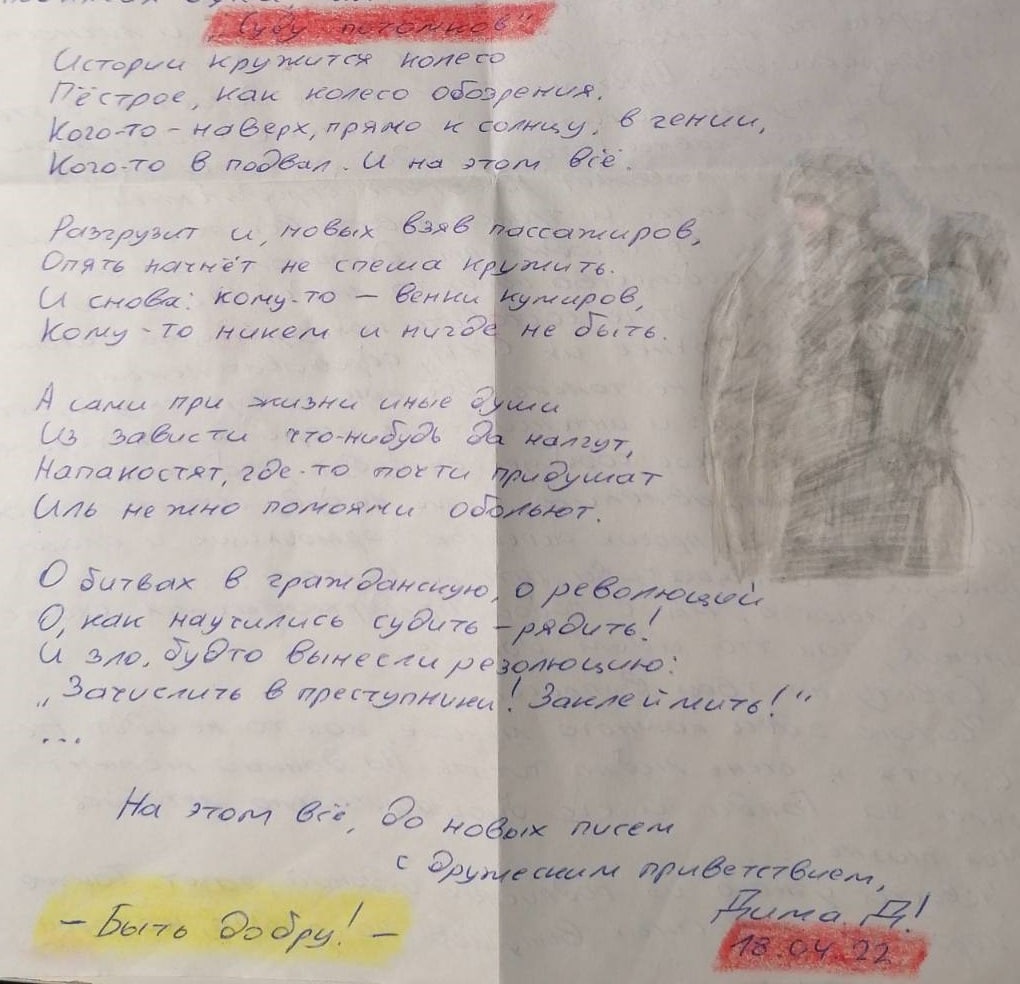 „Суду потомков"
Истории кружится колесо
Пёстрое, как колесо обозрения.
Кого-то – наверх, прямо к солнцу, в гении,
Кого-то в подвал. И на этом всё.
Разгрузит и, новых взяв пассажиров,
Опять начнёт не спеша кружить.
И снова: кому-то – венки кумиров,
Кому-то никем и нигде не быть.
А сами при жизни иные души
Из зависти что-нибудь да налгут,
Напакостят, где-то почти придушат
Иль нежно помоями обольют.
О битвах в гражданскую, о революций
О, как научились судить – рядить!
И зло, будто вынесли резолюцию:
„Зачислить в преступники! Заклеймить!"
...
На этом всё, До новых писем
с дружеским приветствием,
Дима Д!
– Быть добру! –
18.04.22